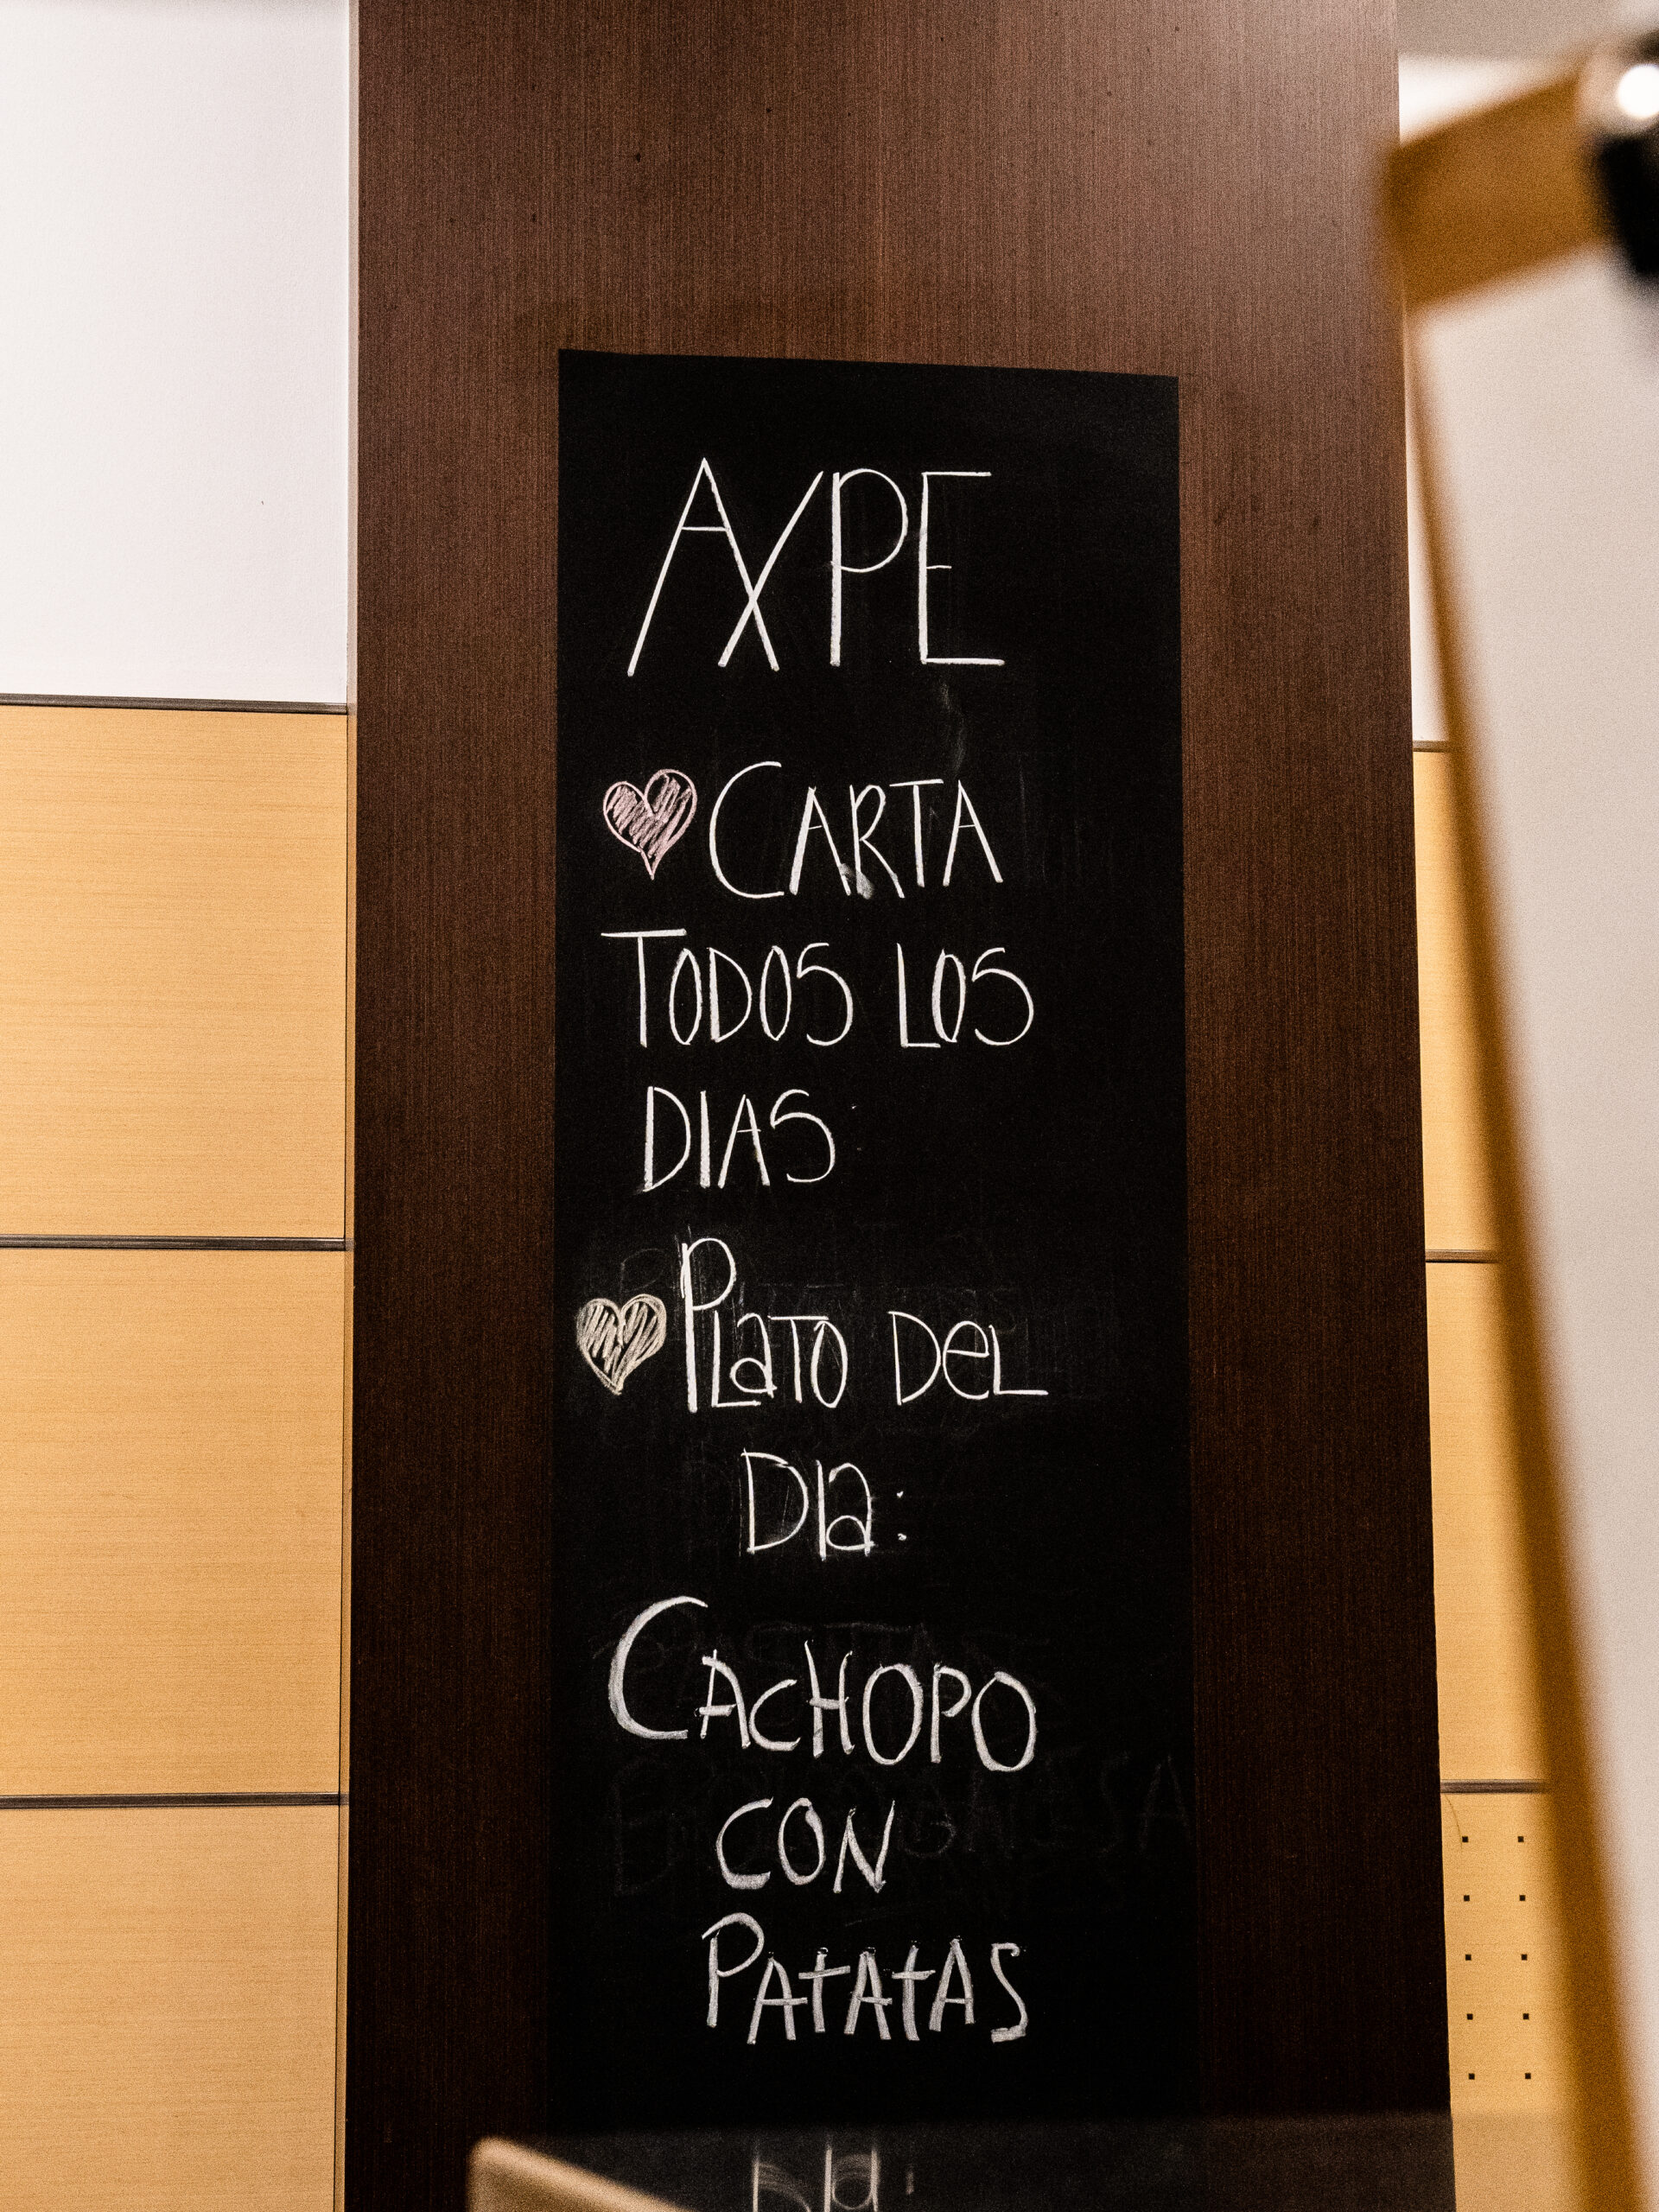 AXPE
CARTA
TODOS LOS
DIAS
PLaTO DeL
DIa:
CACHOPO
CON
PATATAS